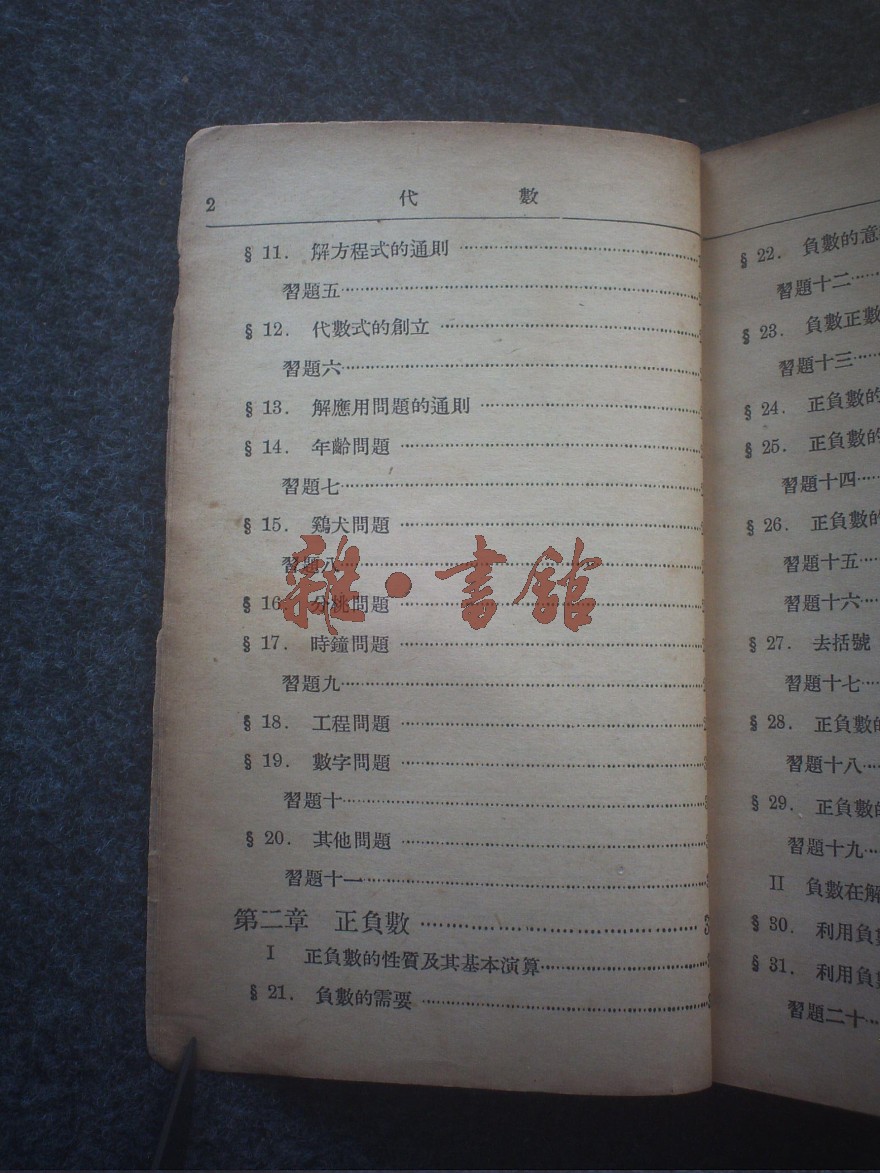 2 代數
§ 11. 解方程式的通則
習題五
§ 12. 代數式的創立
習題六
§ 13. 解應用問題的通則
§ 14. 年齡問題
習題七
§ 15. 鷄犬問題
習題八
§ 16. 分桃問題
§ 17. 時鐘問題
習題九
§ 18. 工程問題
§ 19. 數字問題
習題十
§ 20. 其他問題
習題十一
第二章 正負數
I 正負數的性質及其基本演算
§ 21. 負數的需要
雜·書館
§ 22. 負數的意
習題十二
§ 23. 負數正數
習題十三
§ 24. 正負數的
§ 25. 正負數的
習題十四
§ 26. 正負數的
習題十五
習題十六
§ 27. 去括號
習題十七
§ 28. 正負數的
習題十八
§ 29. 正負數的
習題十九
II 負數在解
§ 30. 利用負
§ 31. 利用負
習題二十